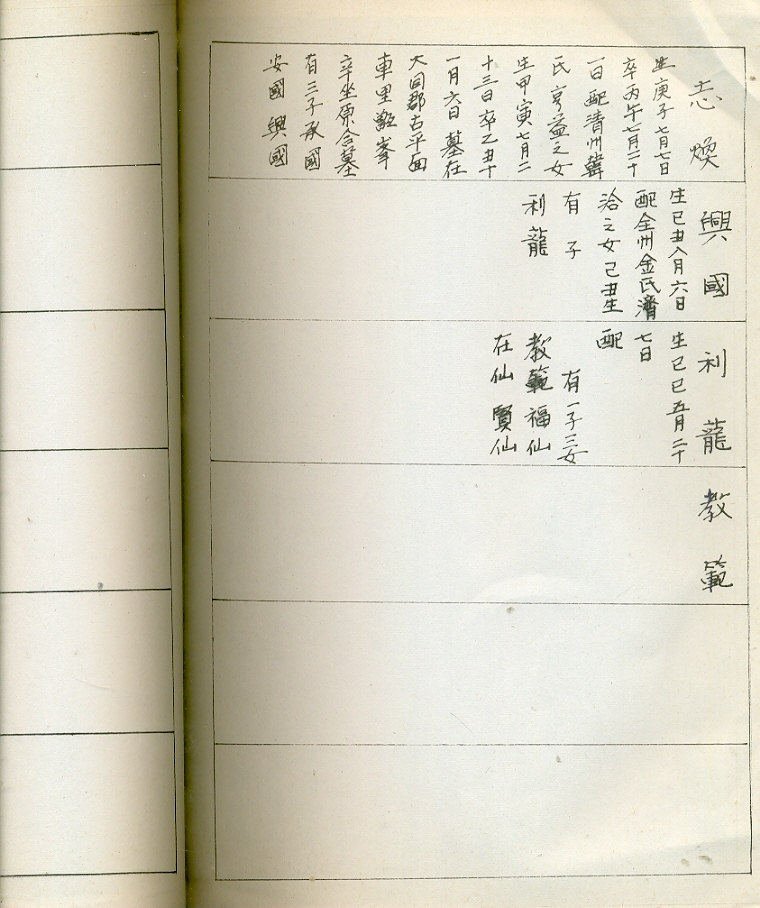 志煥
生庚子七月七日
卒丙午七月二十
一日配清州韓
氏亨益之女
生甲寅七月二
十三日卒乙丑十
一月六日墓在
大同郡古平面
車里 峯
辛坐原合墓
有三子承國
安國興國
興國
生己丑八月六日
配全州金氏濟
洽之女己丑生
有子
利龍
利龍
生己巳五月二十
七日
配
有一子三女
教範福仙
在仙賢仙
教範